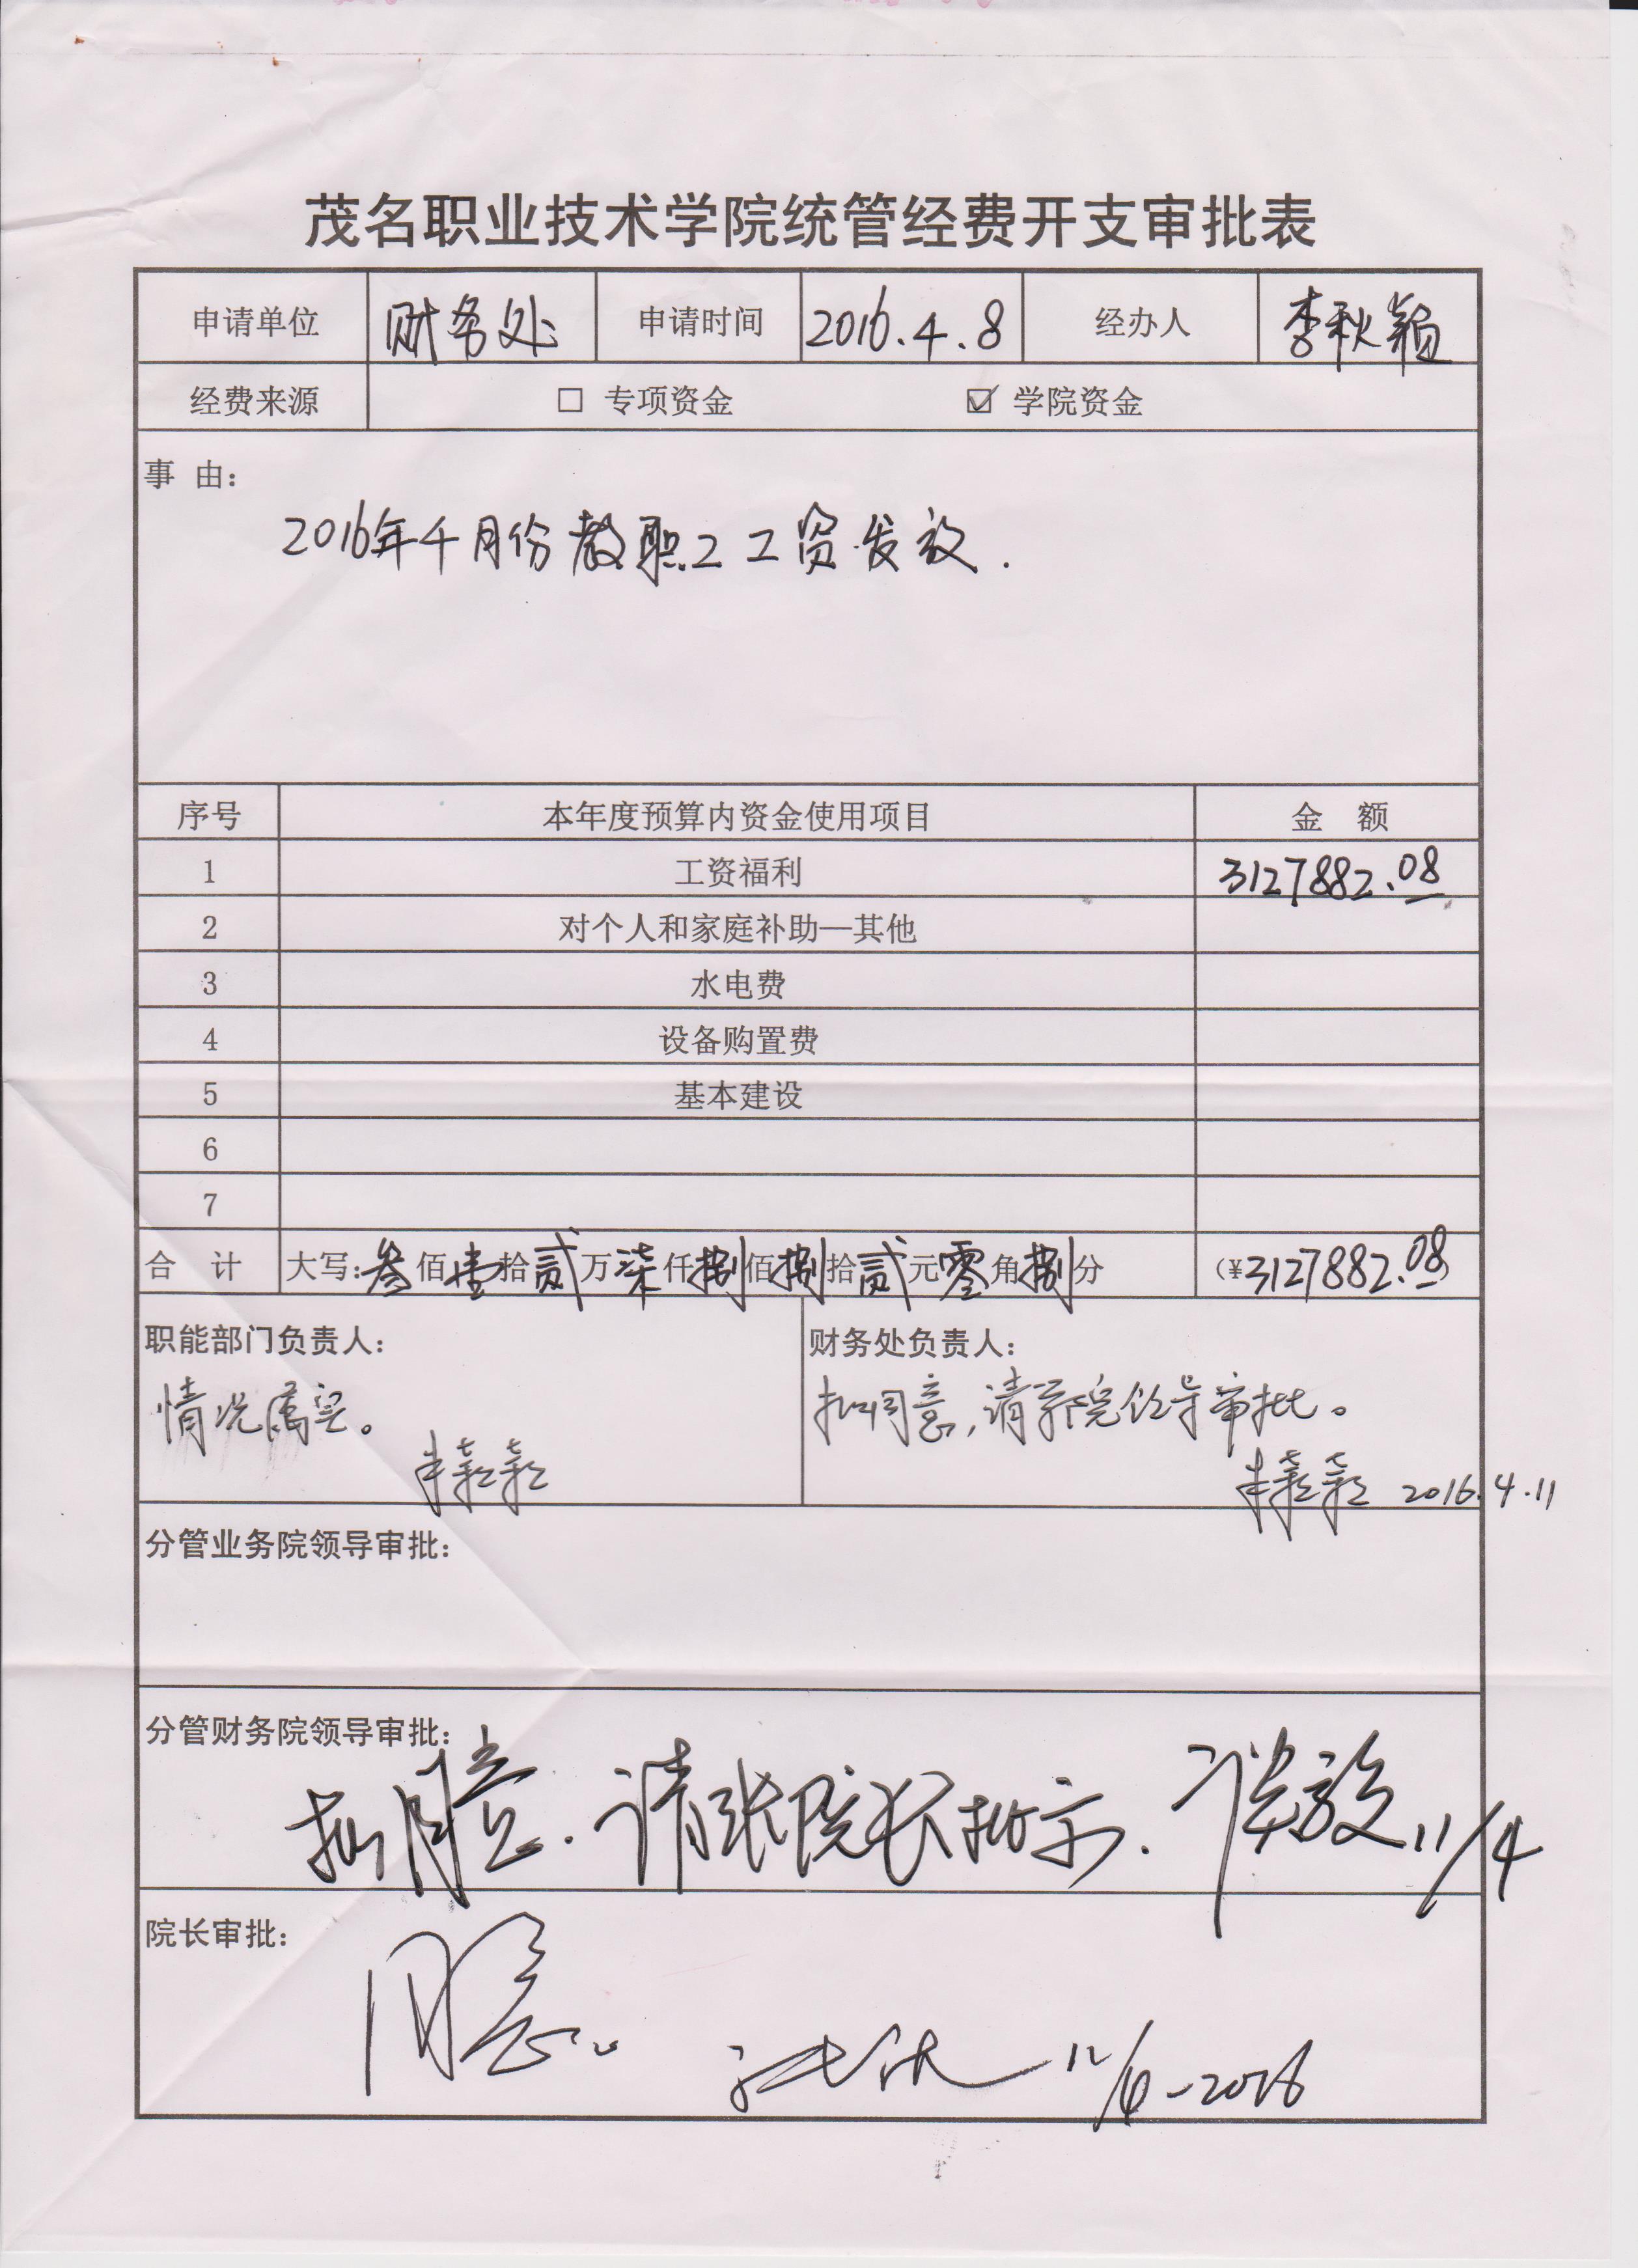 茂名职业技术学院统管经费开支审批表
申请单位 财务处 申请时间 2016.4.8 经办人 李秋颖
经费来源 □ 专项资金 ☑ 学院资金
事 由：
2016年4月份教职工工资发放.
序号 本年度预算内资金使用项目 金 额
1 工资福利 3127882.08
2 对个人和家庭补助—其他
3 水电费
4 设备购置费
5 基本建设
6
7
合 计 大写：叁佰壹拾贰万柒仟捌佰捌拾贰元零角捌分 (¥3127882.08)
职能部门负责人： 财务处负责人：
情况属实。 拟同意，请学院领导审批。
2016.4.11
分管业务院领导审批：
分管财务院领导审批：
拟同意.请张院长批示. 11/4
院长审批：
同意